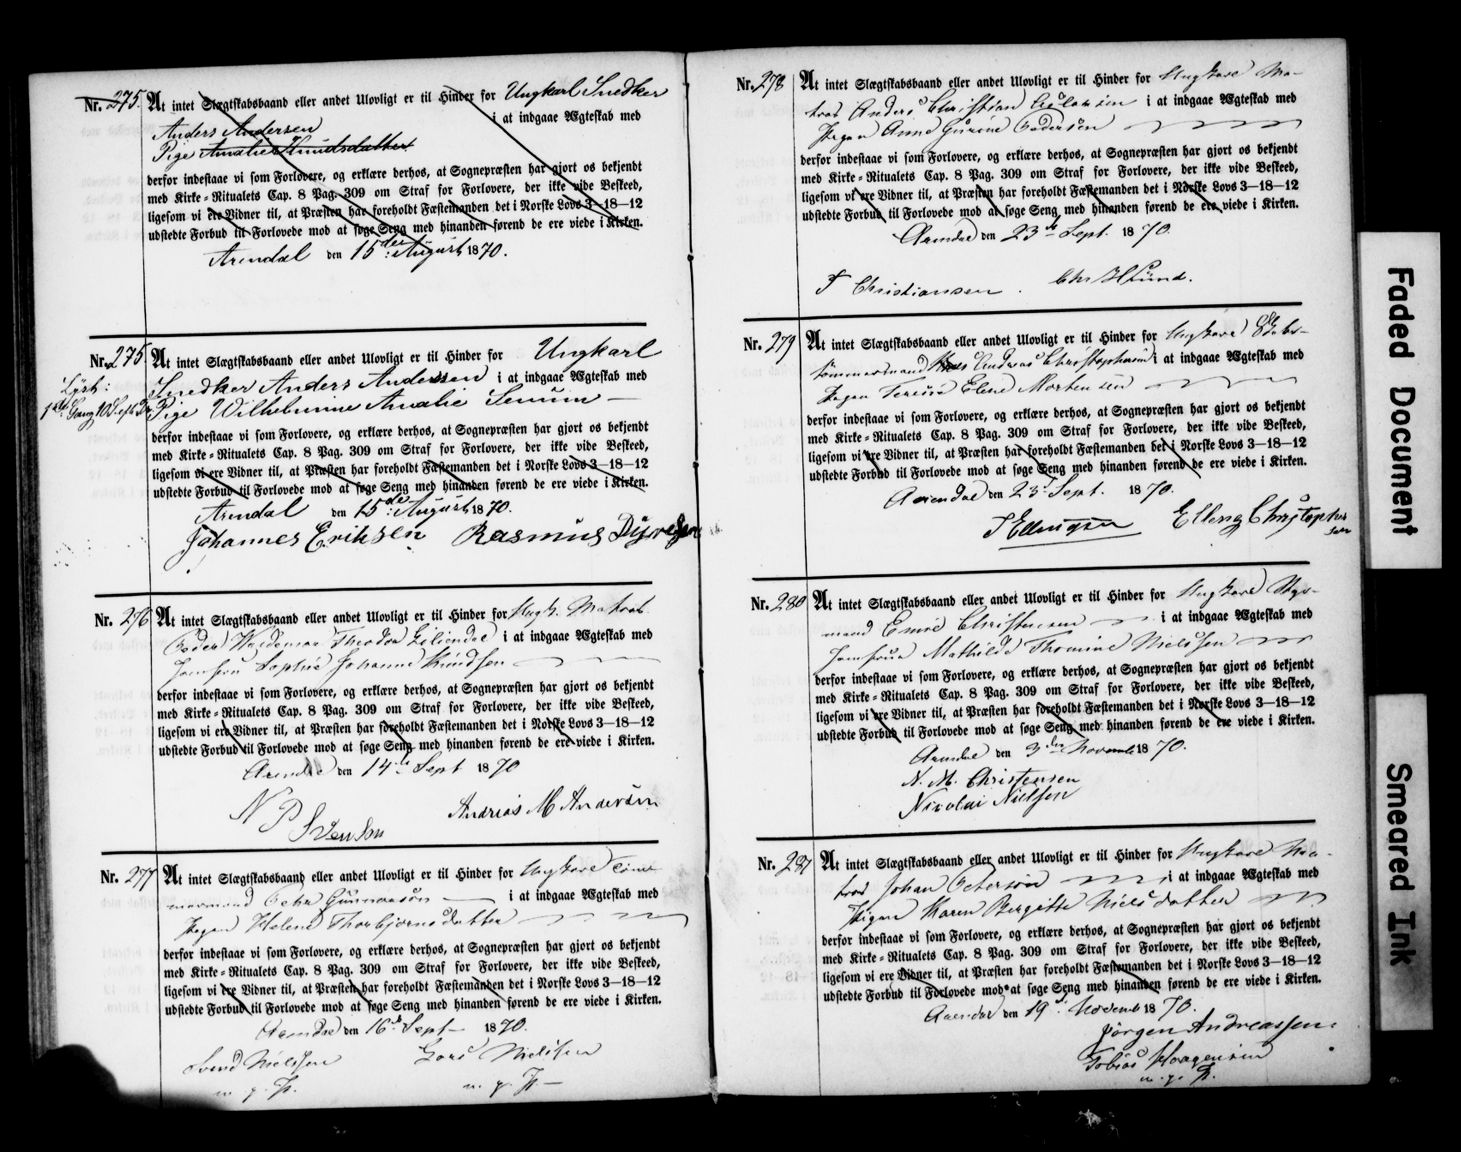 Nr. 275. At intet Slægtskabsbaand eller andet Ulovligt er til Hinder for Ungkarl Snedker
Anders Andersen i at indgaae Ægteskab med
Pige Amalie Knudsdatter
derfor indestaae vi som Forlovere, og erklære derhos, at Sognepræsten har gjort os bekjendt
med Kirke-Ritualets Cap. 8 Pag. 309 om Straf for Forlovere, der ikke vide Beskeed,
ligesom vi ere Vidner til, at Præsten har foreholdt Fæstemanden det i Norske Lovs 3—18—12
udstedte Forbud til Forlovede mod at søge Seng med hinanden førend de ere viede i Kirken.
Arendal den 15de August 1870.
Nr. 275 At intet Slægtskabsbaand eller andet Ulovligt er til Hinder for Ungkarl
Lyst:
Snedker Anders Andersen i at indgaae Ægteskab med
1ste Gang 10 Sept
Pige Wilhelmine Amalie
derfor indestaae vi som Forlovere, og erklære derhos, at Sognepræsten har gjort os bekjendt
med Kirke-Ritualets Cap. 8 Pag. 309 om Straf for Forlovere, der ikke vide Beskeed,
ligesom vi ere Vidner til, at Præsten har foreholdt Fæstemanden det i Norske Lovs 3—18—12
udstedte Forbud til Forlovede mod at søge Seng med hinanden førend de ere viede i Kirken.
Arendal den 15de August 1870.
Johannes Eriksen Rasmus
Nr. 276 At intet Slægtskabsbaand eller andet Ulovligt er til Hinder for Ungk. Matros
Peder Waldemar Theodor i at indgaae Ægteskab med
Jomfru Sophie Johanne Knudsen
derfor indestaae vi som Forlovere, og erklære derhos, at Sognepræsten har gjort os bekjendt
med Kirke-Ritualets Cap. 8 Pag. 309 om Straf for Forlovere, der ikke vide Beskeed,
ligesom vi ere Vidner til, at Præsten har foreholdt Fæstemanden det i Norske Lovs 3—18—12
udstedte Forbud til Forlovede mod at søge Seng med hinanden førend de ere viede i Kirken.
Arendal den 14de Sept 1870
N P Svendsen Andreas M Andersen
Nr. 277 At intet Slægtskabsbaand eller andet Ulovligt er til Hinder for Ungkarl Tøm-
mermand Peder Gunnarsøn i at indgaae Ægteskab med
Pigen Helene Thorbjørnsdatter
derfor indestaae vi som Forlovere, og erklære derhos, at Sognepræsten har gjort os bekjendt
med Kirke-Ritualets Cap. 8 Pag. 309 om Straf for Forlovere, der ikke vide Beskeed,
ligesom vi ere Vidner til, at Præsten har foreholdt Fæstemanden det i Norske Lovs 3—18—12
udstedte Forbud til Forlovede mod at søge Seng med hinanden førend de ere viede i Kirken.
Arendal den 16de Sept 1870.
Svend Nielsen Lars Nielsen
m. p. P. m. p. P
Nr. 278 At intet Slægtskabsbaand eller andet Ulovligt er til Hinder for Ungkarl Ma-
tros Anders Christian i at indgaae Ægteskab med
Pigen Anne Gurine Pedersen
derfor indestaae vi som Forlovere, og erklære derhos, at Sognepræsten har gjort os bekjendt
med Kirke-Ritualets Cap. 8 Pag. 309 om Straf for Forlovere, der ikke vide Beskeed,
ligesom vi ere Vidner til, at Præsten har foreholdt Fæstemanden det i Norske Lovs 3—18—12
udstedte Forbud til Forlovede mod at søge Seng med hinanden førend de ere viede i Kirken.
Arendal den 23de Sept. 1870.
T Christiansen. Chr H Lund.
Nr. 279 At intet Slægtskabsbaand eller andet Ulovligt er til Hinder for Ungkarl Skibs-
tømmermand Andreas Christophersen i at indgaae Ægteskab med
Pigen Terese Elene Mortensen
derfor indestaae vi som Forlovere, og erklære derhos, at Sognepræsten har gjort os bekjendt
med Kirke-Ritualets Cap. 8 Pag. 309 om Straf for Forlovere, der ikke vide Beskeed,
ligesom vi ere Vidner til, at Præsten har foreholdt Fæstemanden det i Norske Lovs 3—18—12
udstedte Forbud til Forlovede mod at søge Seng med hinanden førend de ere viede i Kirken.
Arendal den 23de Sept. 1870.
T Ellingsen Elleng Christophersen
Nr. 280 At intet Slægtskabsbaand eller andet Ulovligt er til Hinder for Ungkarl Styr-
mand Emil Christensen i at indgaae Ægteskab med
Jomfrue Mathilde Thomine Nielsen
derfor indestaae vi som Forlovere, og erklære derhos, at Sognepræsten har gjort os bekjendt
med Kirke-Ritualets Cap. 8 Pag. 309 om Straf for Forlovere, der ikke vide Beskeed,
ligesom vi ere Vidner til, at Præsten har foreholdt Fæstemanden det i Norske Lovs 3—18—12
udstedte Forbud til Forlovede mod at søge Seng med hinanden førend de ere viede i Kirken.
Arendal den 3die Novemb 1870.
N. M. Christensen
Nicolai Nielsen
Nr. 281 At intet Slægtskabsbaand eller andet Ulovligt er til Hinder for Ungkarl Ma-
tros Johan Petersøn i at indgaae Ægteskab med
Pigen Karen Bergitte Nielsdatter
derfor indestaae vi som Forlovere, og erklære derhos, at Sognepræsten har gjort os bekjendt
med Kirke-Ritualets Cap. 8 Pag. 309 om Straf for Forlovere, der ikke vide Beskeed,
ligesom vi ere Vidner til, at Præsten har foreholdt Fæstemanden det i Norske Lovs 3—18—12
udstedte Forbud til Forlovede mod at søge Seng med hinanden førend de ere viede i Kirken.
Arendal den 19de Novemb 1870.
Jørgen Andreassen
Tobias Haagensen
m. p. P.
Faded Document
Smeared Ink